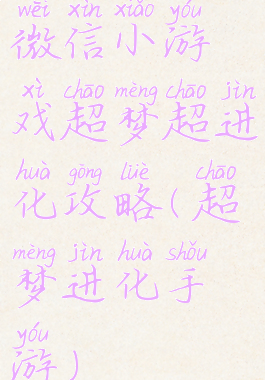 wēi xìn xiǎo yóu
微信小游
xì chāo mèng chāo jìn
戏超梦超进
huà gōng lüè chāo
化攻略(超
mèng jìn huà shǒu
梦进化手
yóu
游)